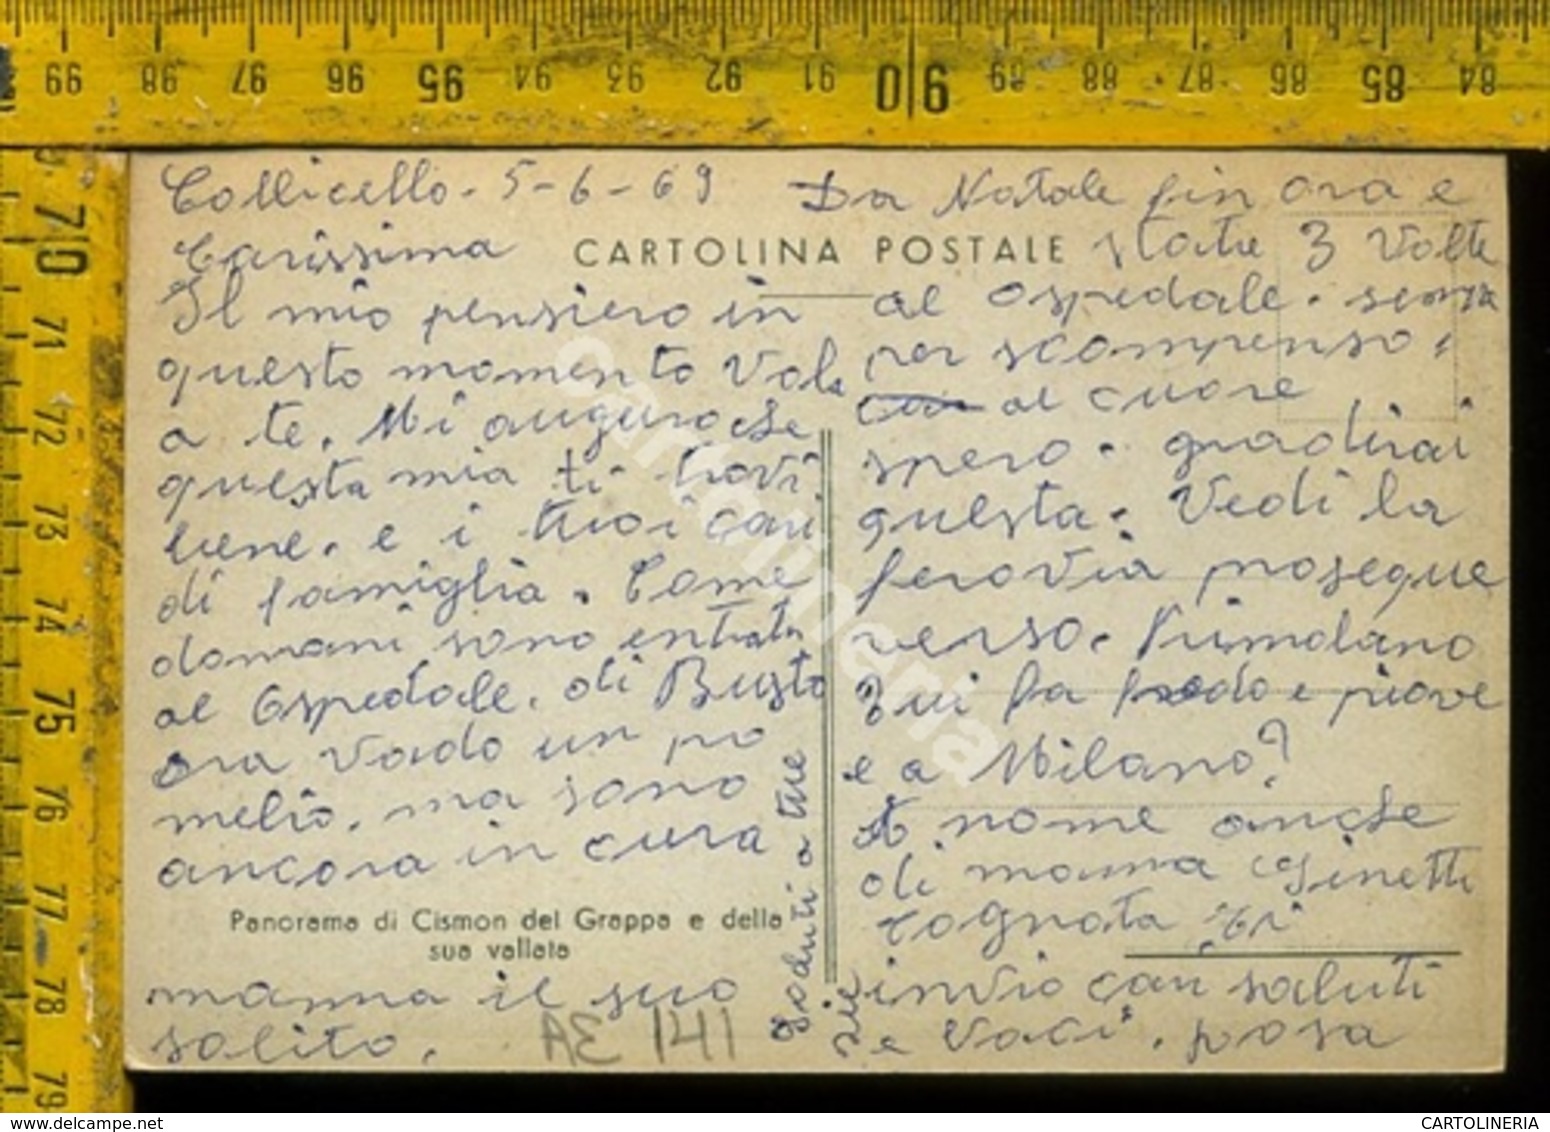 Collicello - 5-6-69
Carissima
Il mio pensiero in
questo momento Vola
a te. Mi auguro che
questa mia ti trovi
bene. e i tuoi cari
di famiglia. Come
domani sono entrata
al Ospedale. di Busto
ora Vado un po
melio. ma sono
ancora in cura
Panorama di Cismon del Grappa e della
sua vallata
mamma il suo
solito.
AE 141
a tue
zie
Da Natale fin ora e
CARTOLINA POSTALE
state 3 Volte
al ospedale. senza
per scompenso
al cuore
spero. gradirai
questa. Vedi la
ferovia prosegue
verso. Primolano
Qui fa fredo e piove
e a Milano?
A nome anche
di mamma Ginetti
cognata
invio cari saluti
e baci. posa
70 71 72 73 74 75 76 77 78 79
99 98 97 96 95 94 93 92 91 90 89 88 87 86 85 84
cartolineria
CARTOLINERIA